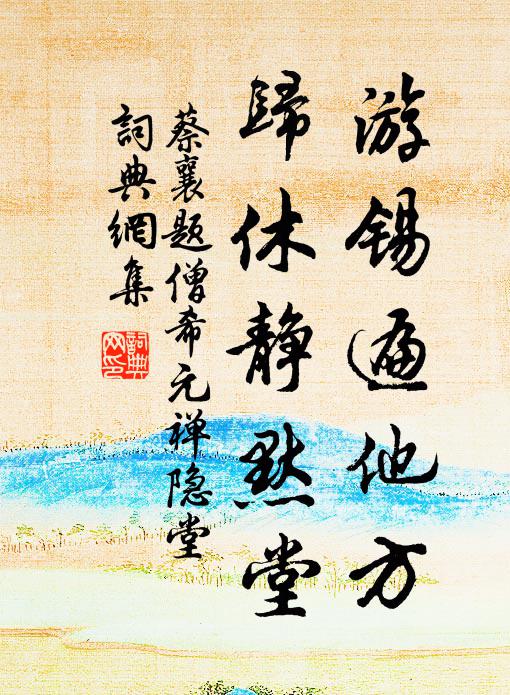 游锡遍他方
歸休静黙堂
蔡襄题僧希元禅隐堂
詞典網集
詞典
网印